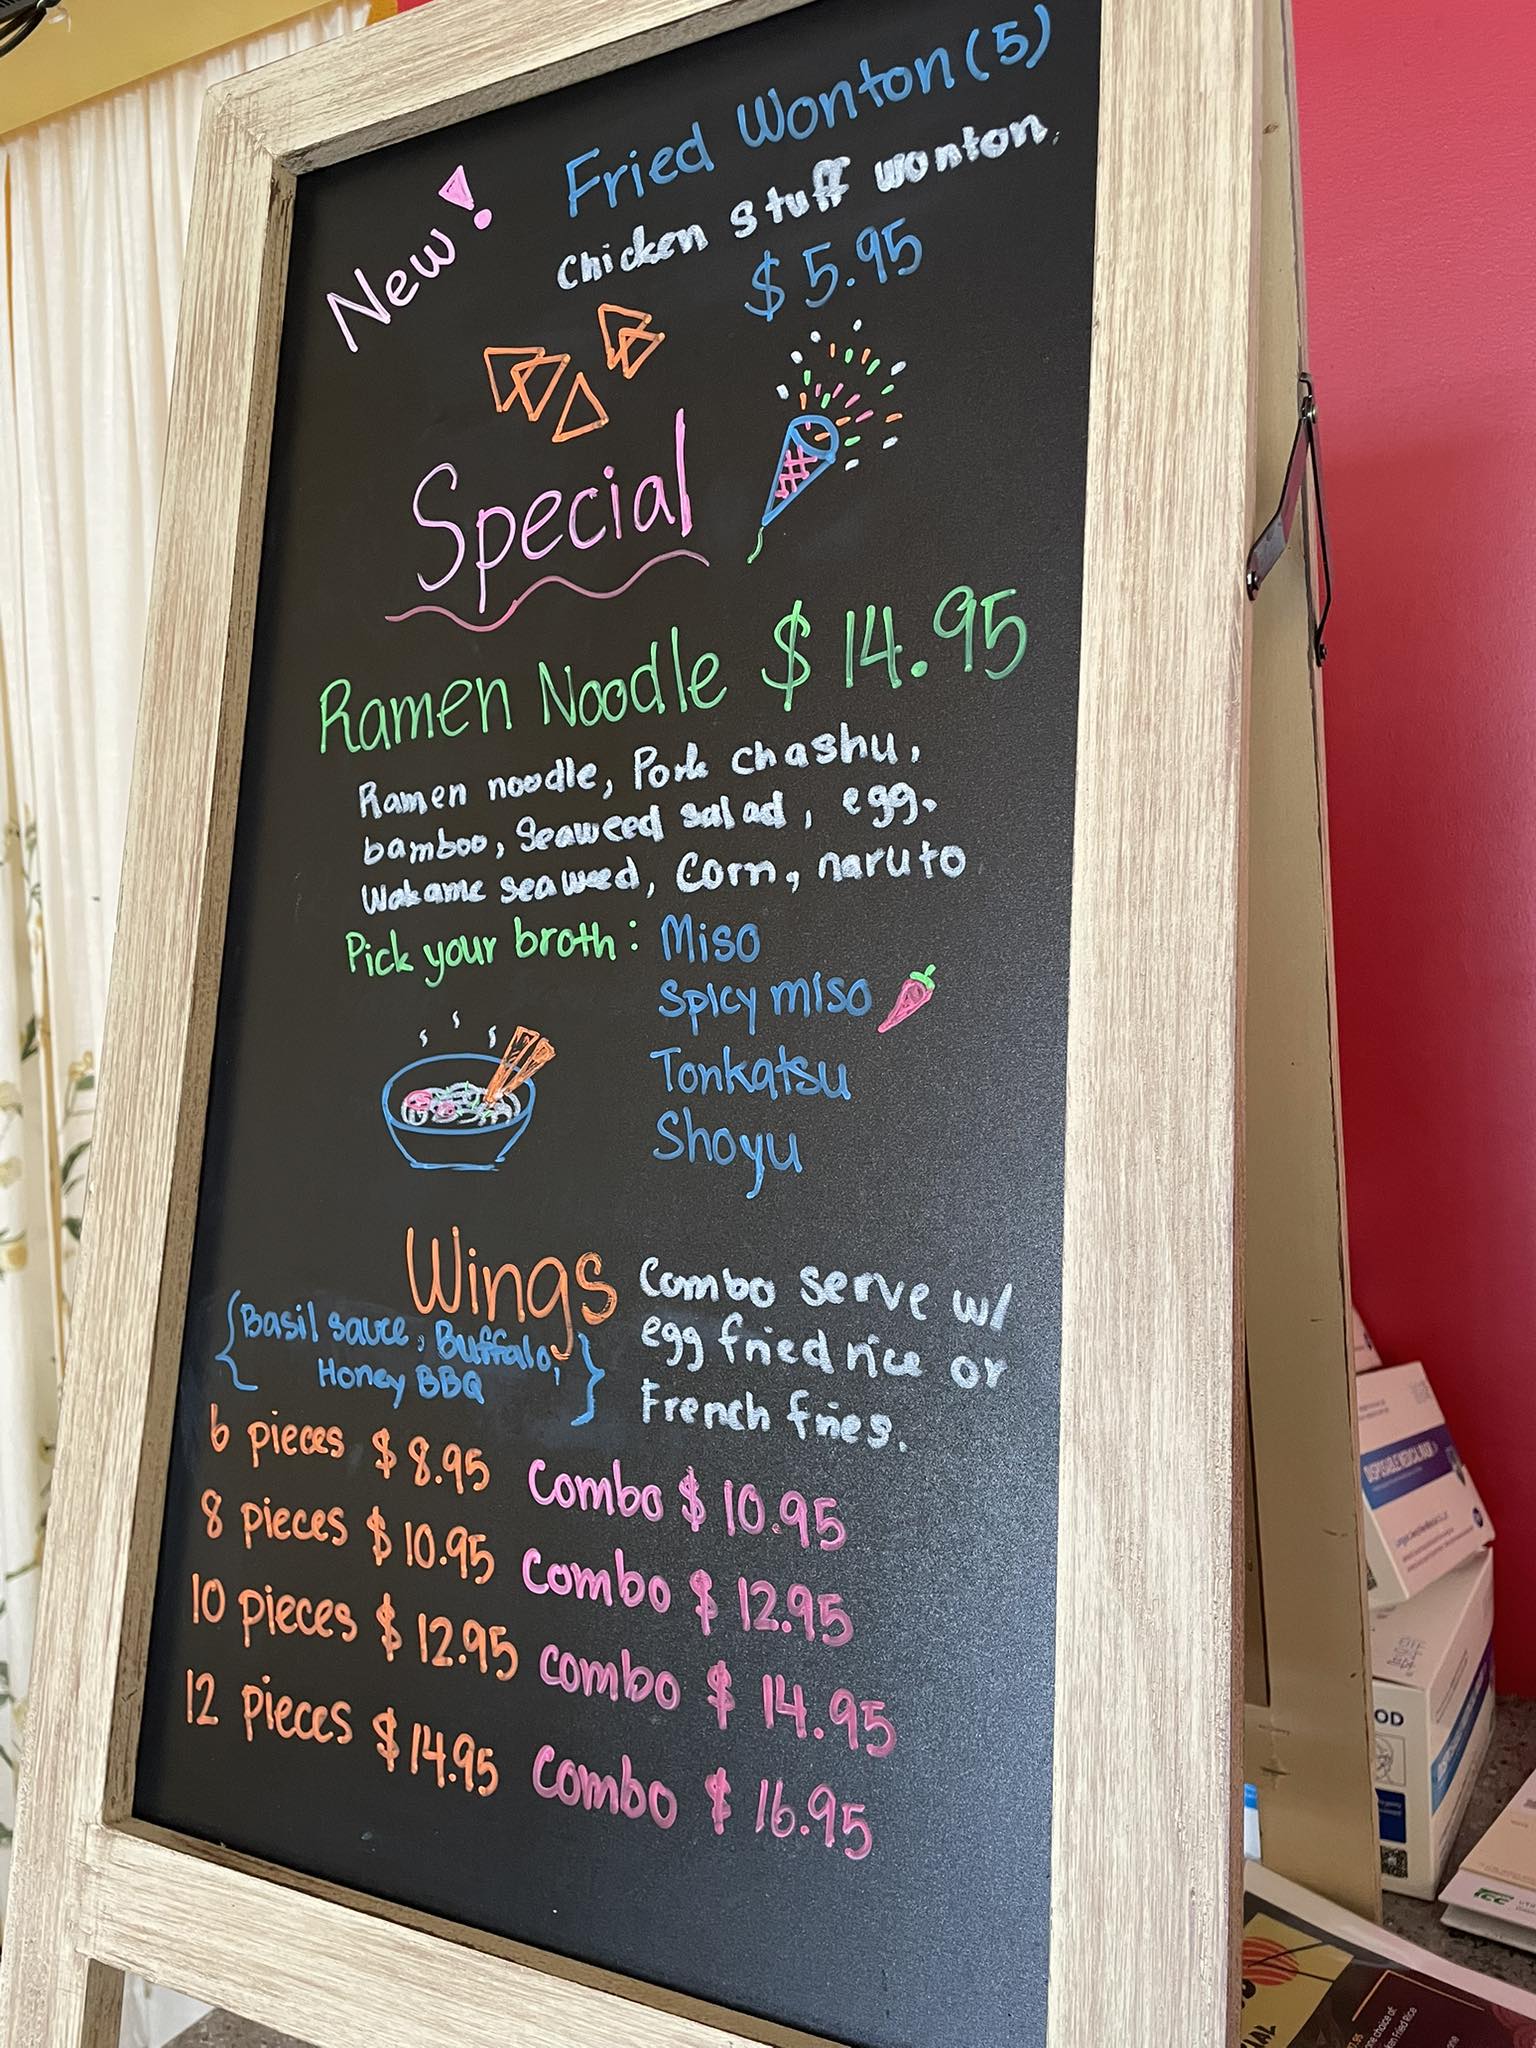 New!
Fried Wonton (5)
Chicken stuff wonton.
$5.95
Special
Ramen Noodle $14.95
Ramen noodle, Pork chashu,
bamboo, Seaweed salad, egg.
Wakame seaweed, Corn, naruto
Pick your broth: Miso
Spicy miso
Tonkatsu
Shoyu
Wings
{Basil sauce, Buffalo,
Honey BBQ}
Combo serve w/
egg fried rice or
French fries.
6 pieces $8.95 Combo $10.95
8 pieces $10.95 Combo $12.95
10 pieces $12.95 combo $14.95
12 pieces $14.95 Combo $16.95
DISPOSABLE MEDICAL MASK
OD